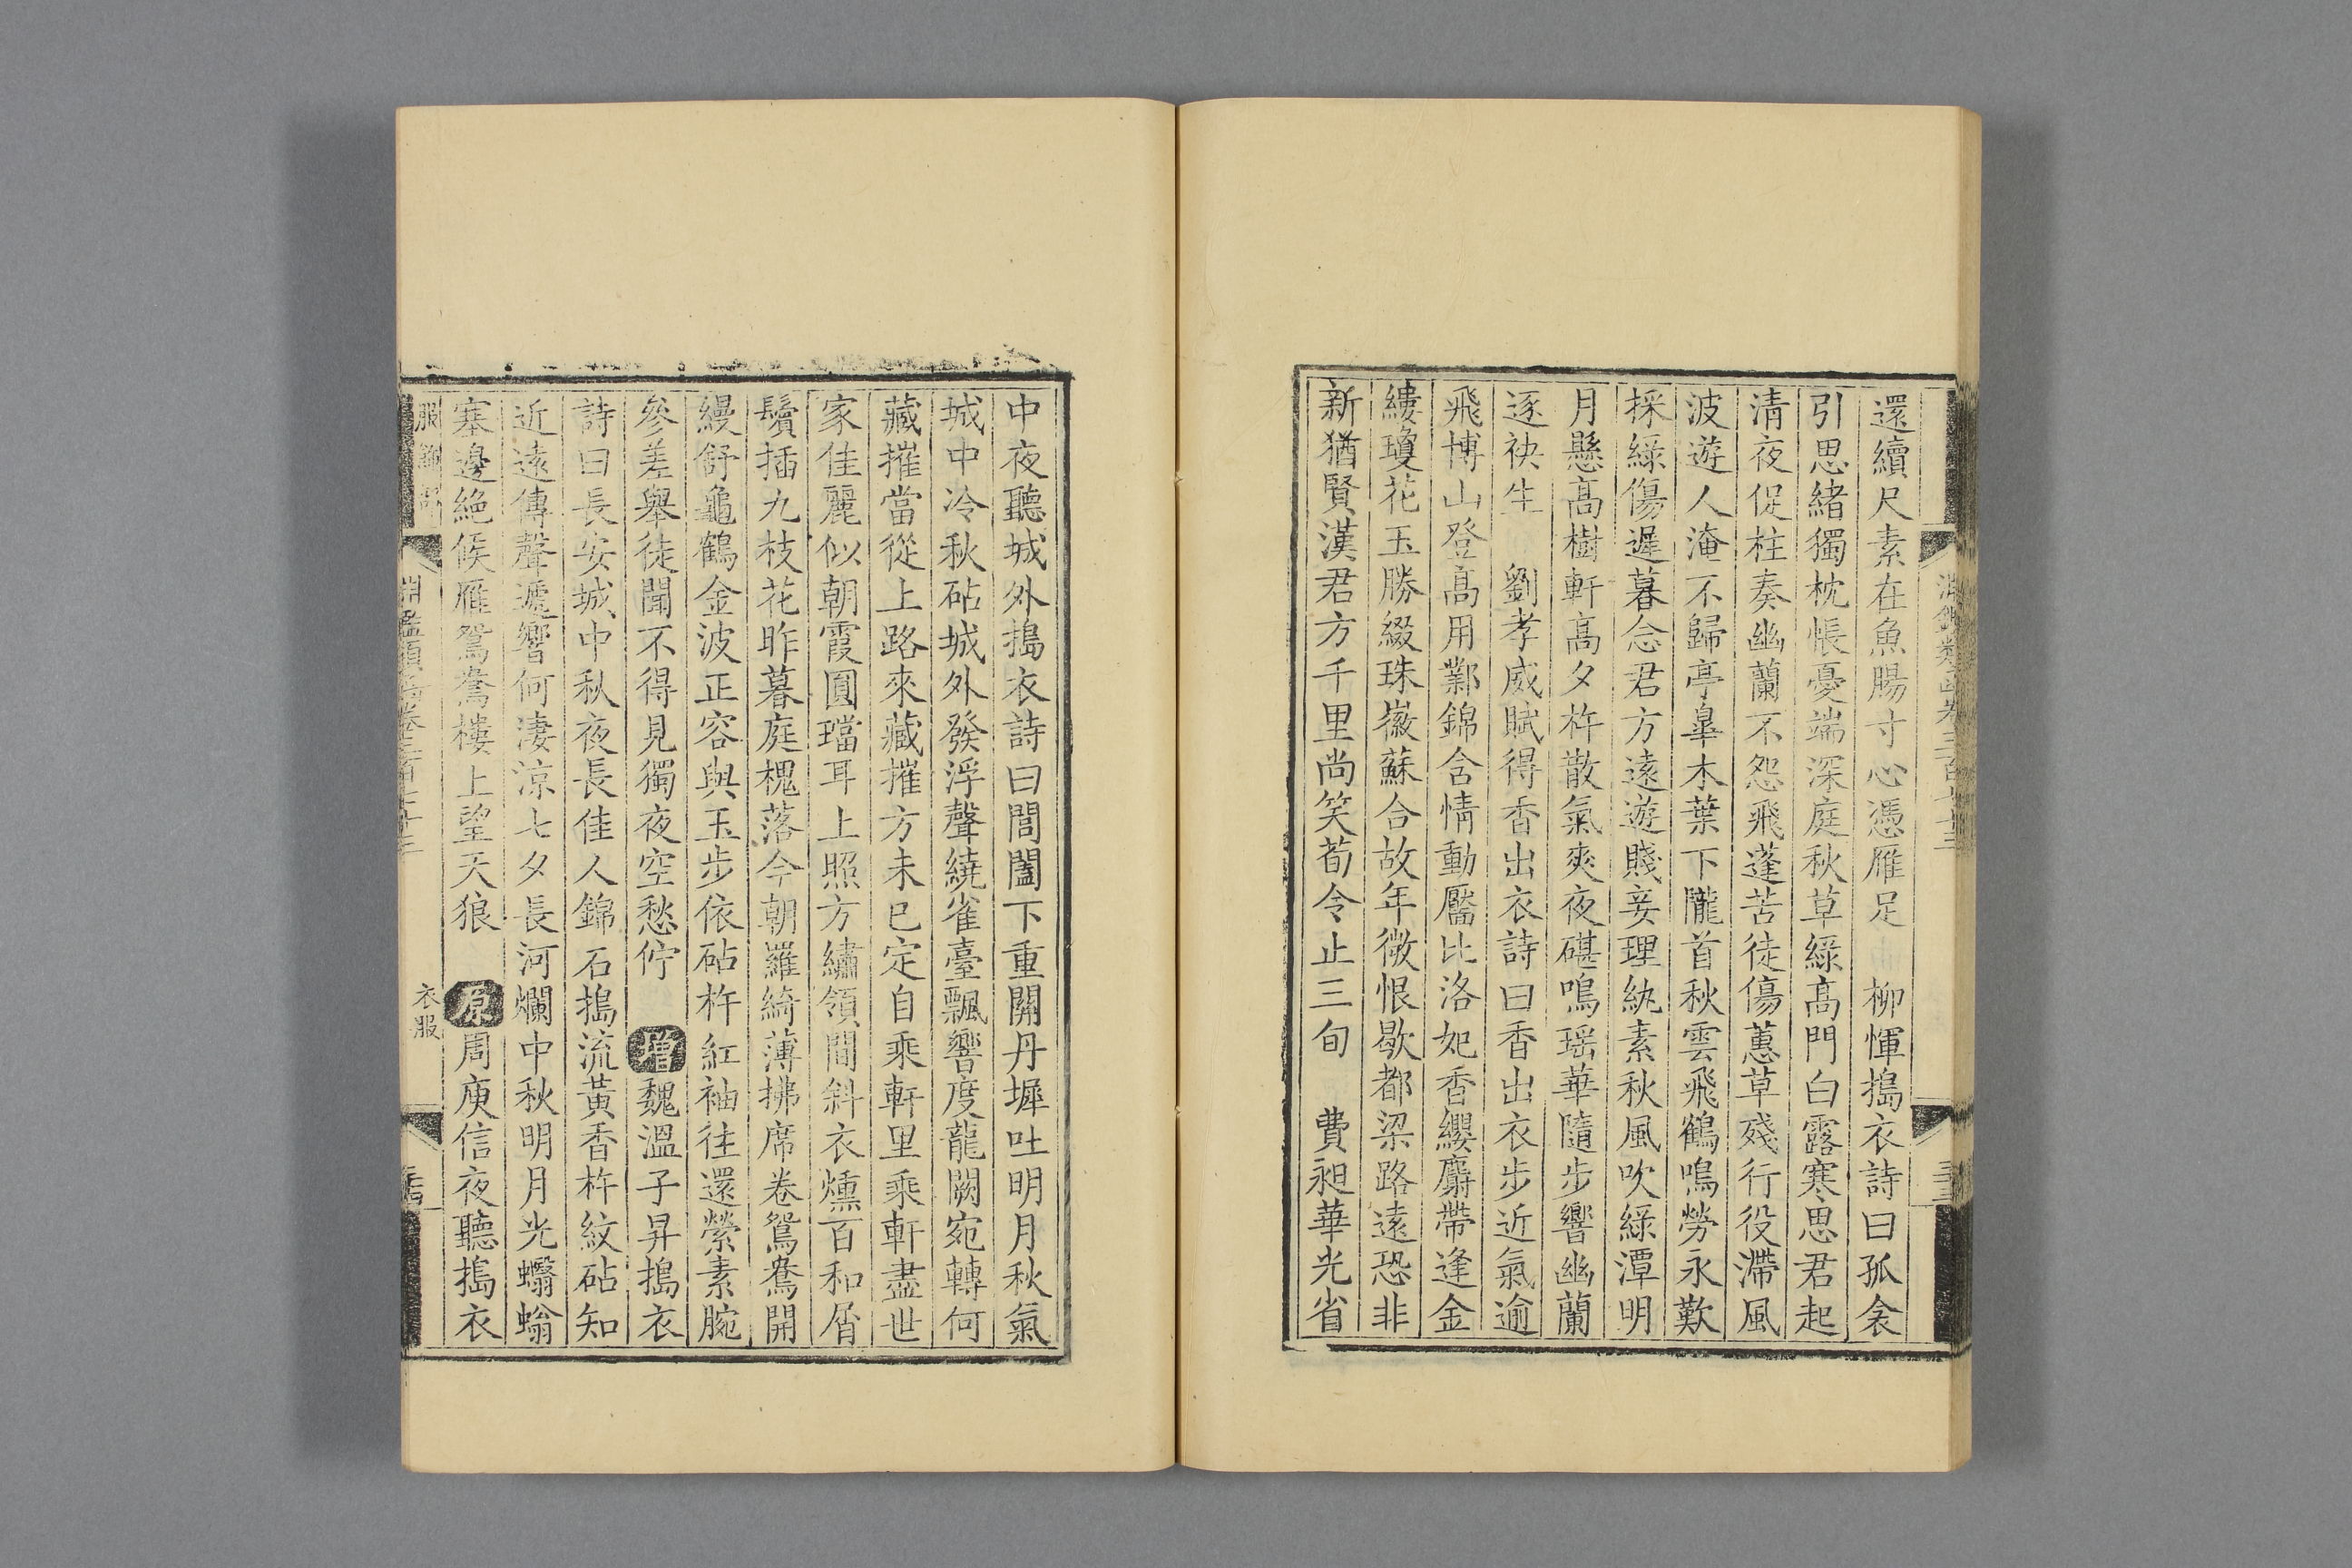 還續尺素在魚腸寸心憑雁足 柳惲搗衣詩曰孤衾
引思緒獨枕悵憂端深庭秋草綠高門白露寒思君起
清夜促柱奏幽蘭不怨飛蓬苦徒傷蕙草殘行役滯風
波遊人淹不歸亭皐木葉下隴首秋雲飛鶴鳴勞永歎
採綠傷遲暮念君方遠遊賤妾理紈素秋風吹綠潭明
月懸高樹軒高夕杵散氣爽夜碪鳴瑶華隨步響幽蘭
逐袂生 劉孝威賦得香出衣詩曰香出衣步近氣逾
飛博山登高用鄴錦含情動靨比洛妃香纓麝帶逢金
縷瓊花玉勝綴珠徽蘇合故年微恨歇都梁路遠恐非
新猶賢漢君方千里尚笑荀令止三旬 費昶華光省
中夜聽城外搗衣詩曰閶闔下重關丹墀吐明月秋氣
城中冷秋砧城外發浮聲繞雀臺飄響度龍闕宛轉何
藏摧當從上路來藏摧方未已定自乘軒里乘軒盡世
家佳麗似朝霞圓璫耳上照方繡領間斜衣燻百和屑
鬢插九枝花昨暮庭槐落今朝羅綺薄拂席卷鴛鴦開
縵舒龜鶴金波正容與玉步依砧杵紅袖往還縈素腕
參差舉徒聞不得見獨夜空愁佇 增魏溫子昇搗衣
詩曰長安城中秋夜長佳人錦石搗流黃香杵紋砧知
近遠傳聲遞響何淒涼七夕長河爛中秋明月光蠮螉
塞邊絕候雁鴛鴦樓上望天狼 原周庾信夜聽搗衣
淵鑑類函卷三百七十三 衣服